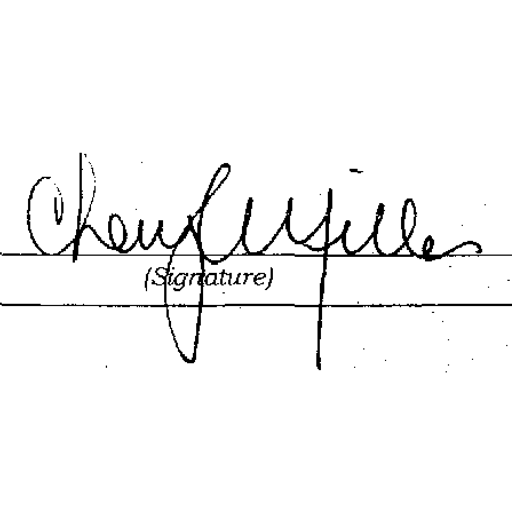 Cheryl Miller
(Signature)